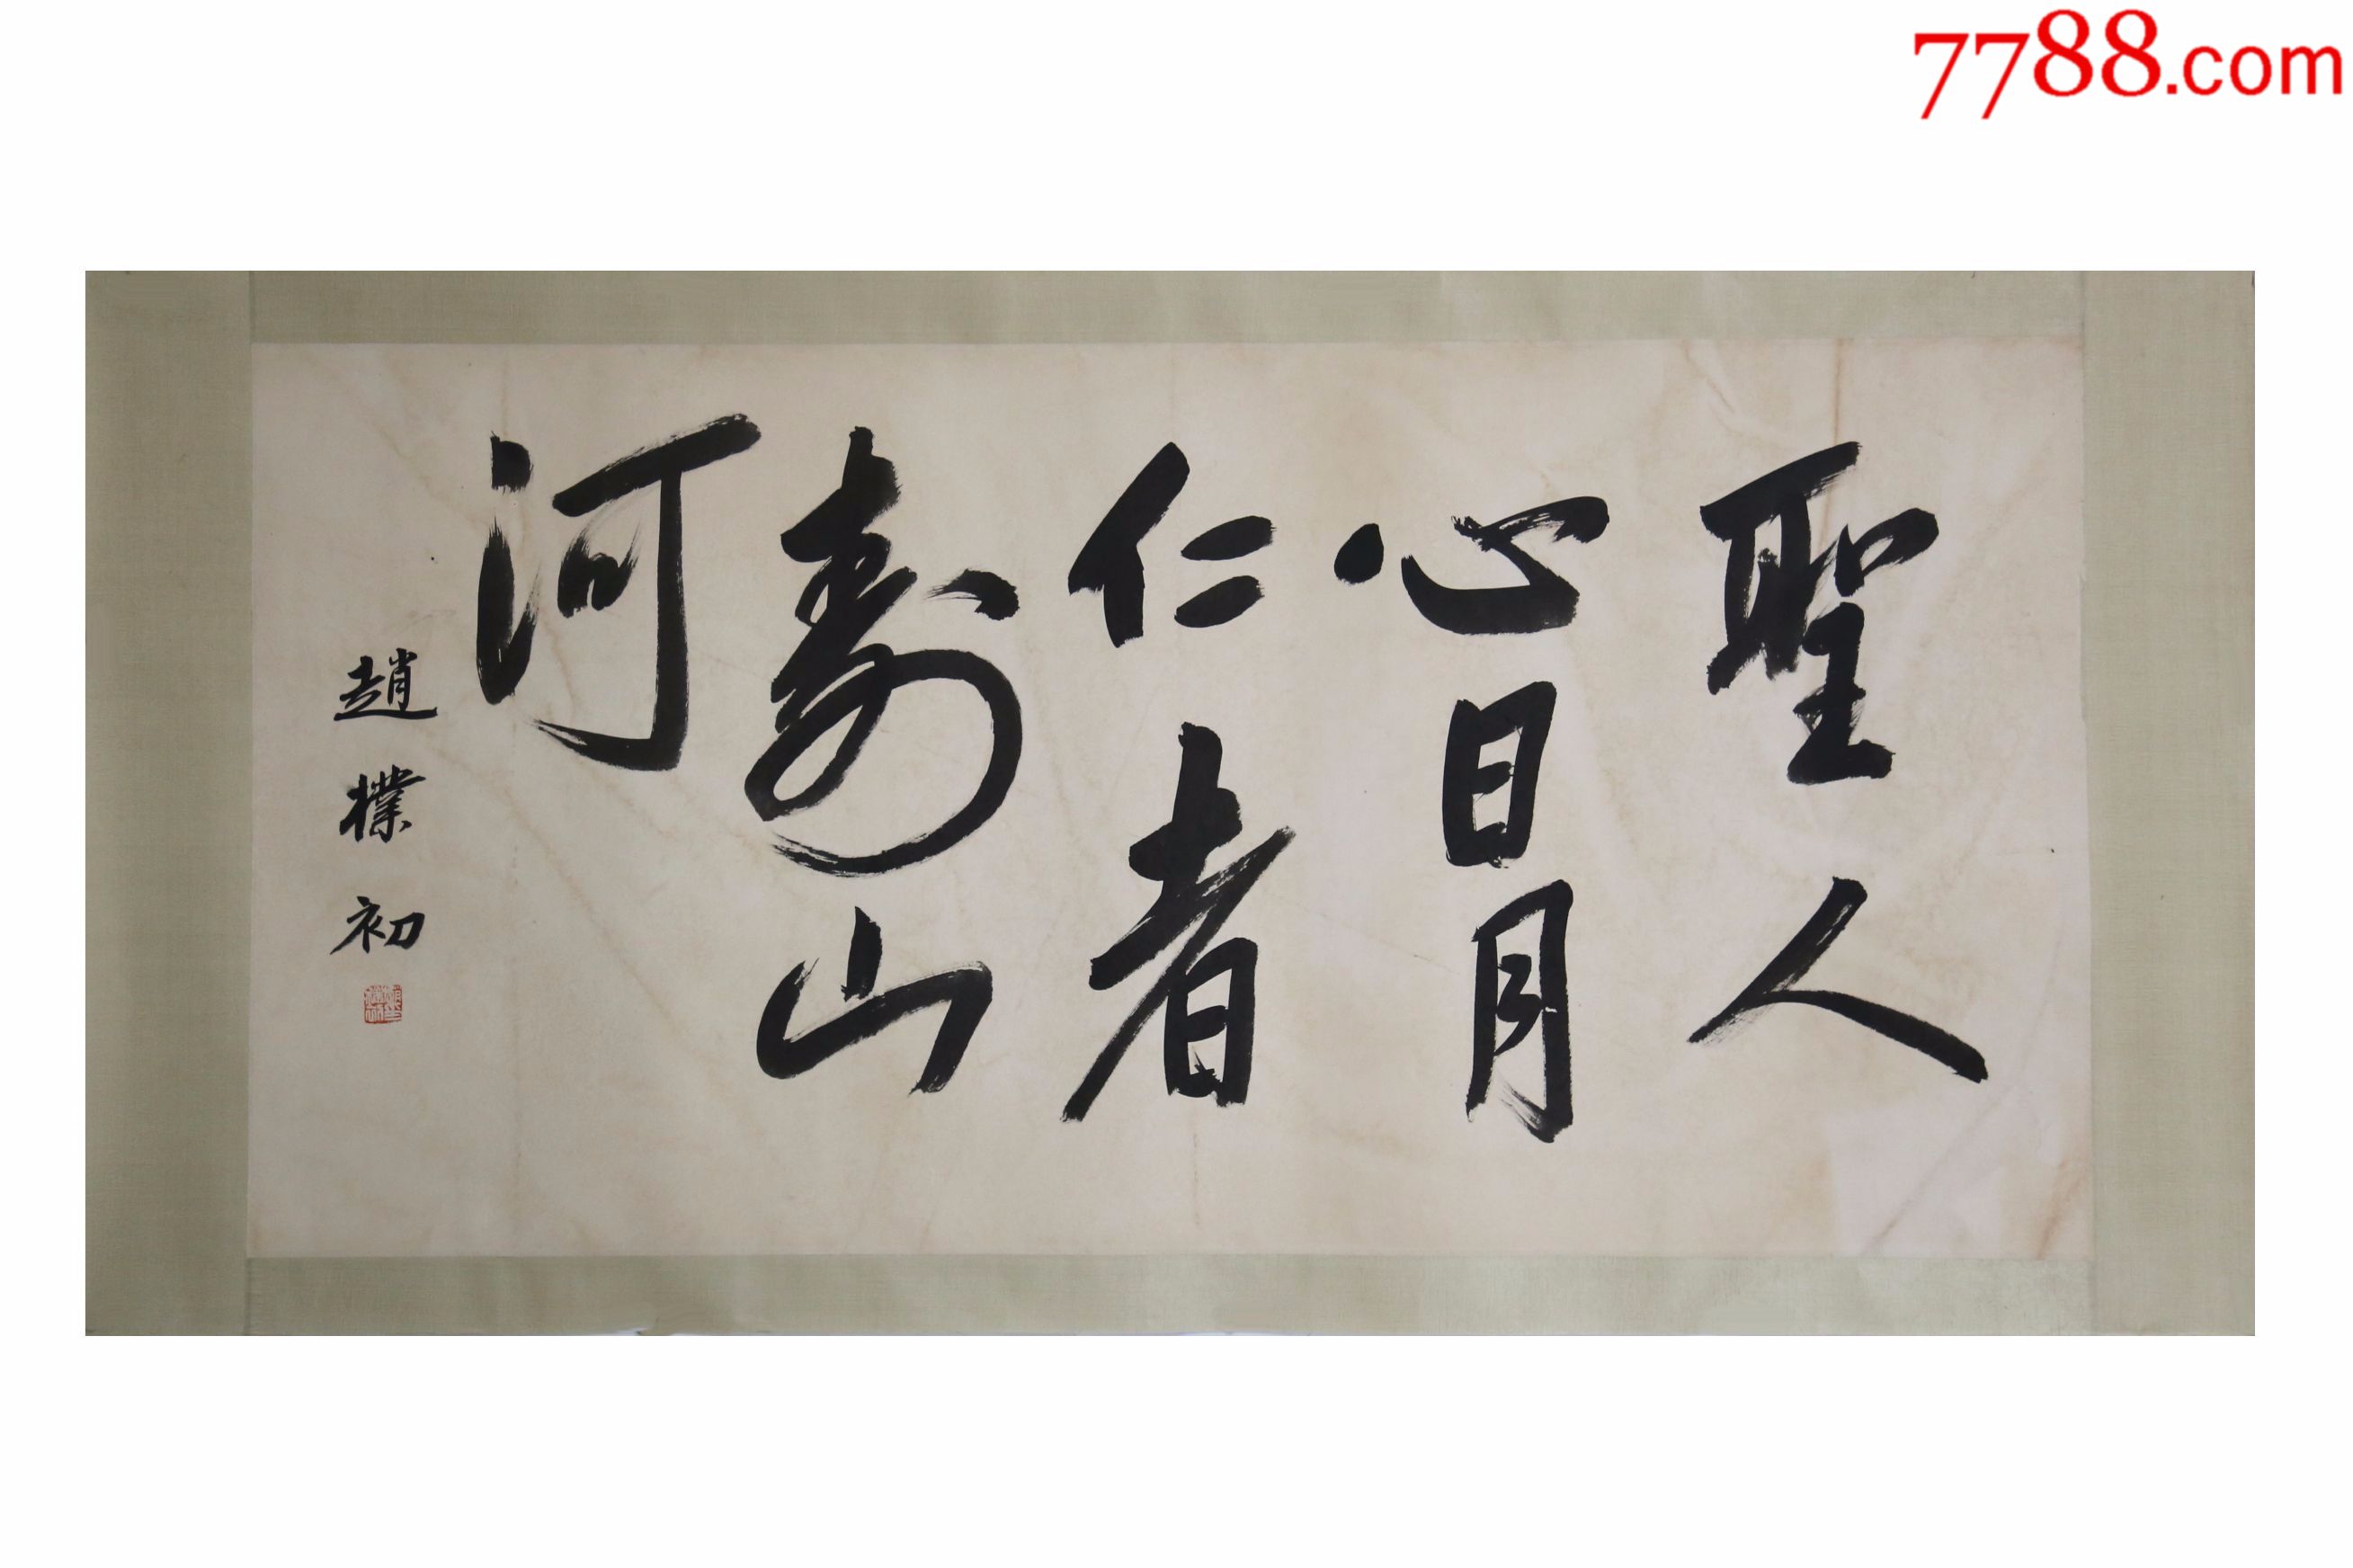 7788.com
聖人
心日月
仁者
壽山
河
趙樸初